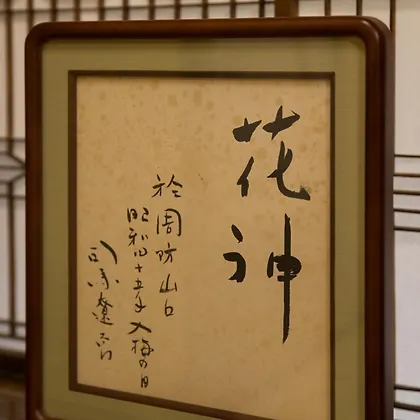 花神
於周防山口
昭和四十五年入梅の日
司馬遼太郎